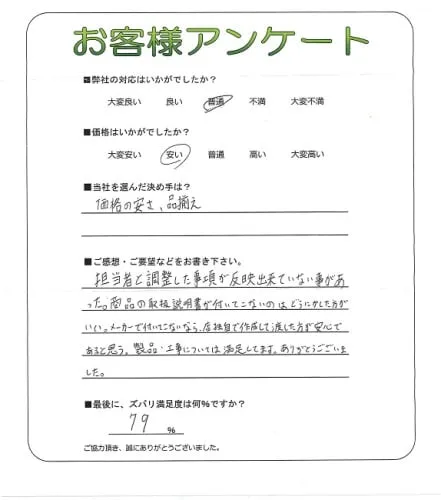 お客様アンケート
■弊社の対応はいかがでしたか?
大変良い 良い 普通 不満 大変不満
■価格はいかがでしたか?
大変安い 安い 普通 高い 大変高い
■当社を選んだ決め手は?
価格の安さ、品揃え
■ご感想・ご要望などをお書き下さい。
担当者と調整した事項が反映出来ていない事があ
った。商品の取扱説明書が付いてこないのはどうにかした方が
いい。メーカーで付いてこないなら、店独自で作成して渡した方が安心で
あると思う。製品・工事については満足してます。ありがとうございま
した。
■最後に、ズバリ満足度は何%ですか?
79 %
ご協力頂き、誠にありがとうございました。